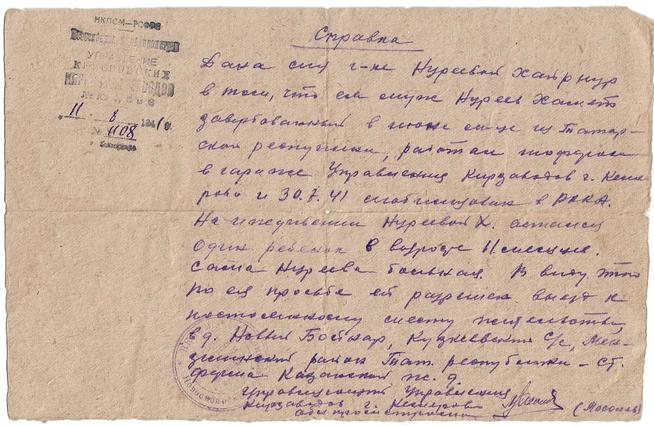 НКПСМ-РСФСР
УПРАВЛЕНИЕ
КЕМЕРОВСКИХ
КИРПИЧНЫХ ЗАВОДОВ
11 8 1941 г.
№ 1108
Справка
Дана сия г-ке Нуреевой Хайрнур
в том, что ея муж Нуреев Хамет
завербованный в июне м-це из Татар-
ской республики, работал шофером
в гараже Управления Кирзаводов г. Кеме-
рово и 30.7.41 смобилизован в РККА.
На иждивении Нуреевой Х. остался
один ребенок в возрасте 11 месяцев.
Сама Нуреева больная. В виду этого
по ея просьбе ей разрешен выезд к
постоянному месту жительства,
в д. Новый Байсар, с/с, Мен-
зелинский район Тат. республики - ст.
Казанской ж.д.
Управляющий Управления
Кирзаводов г. Кемерово